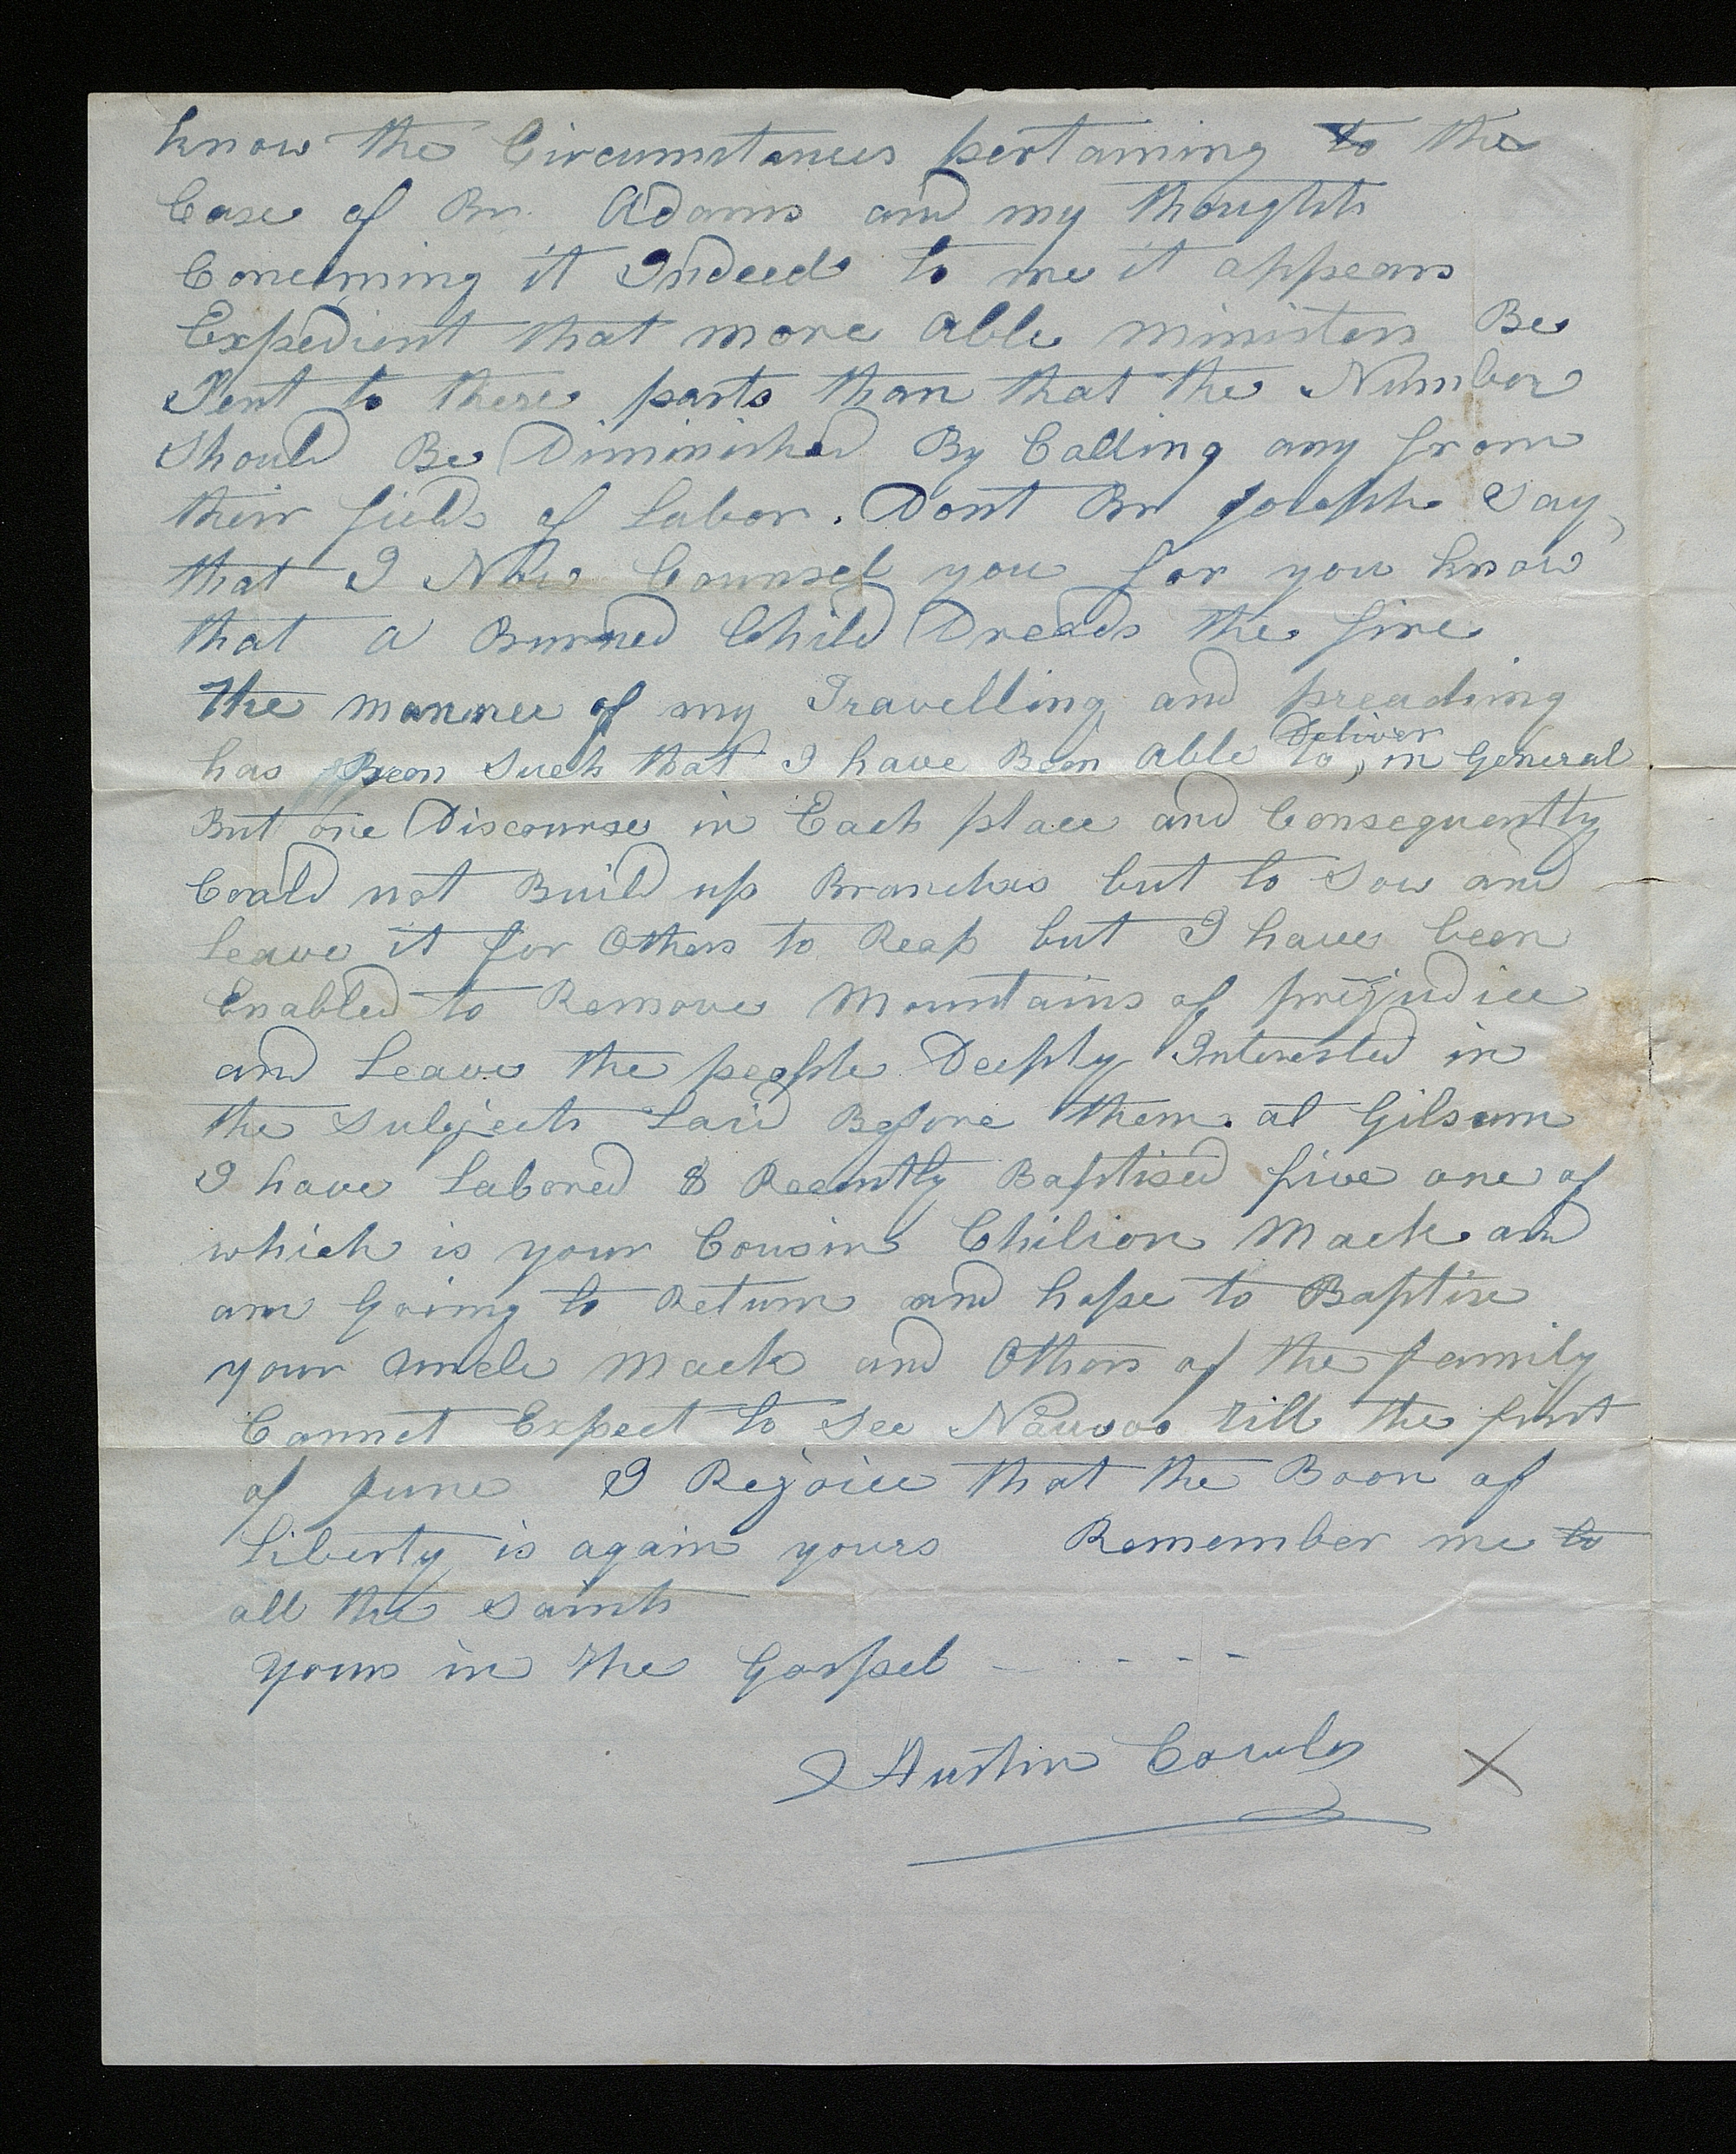 know the Circumstances pertaining to the
Case of Br. Adams and my thoughts
Concerning it Indeed to me it appears
Expedient that more able ministers Be
Sent to these parts than that the Number
Should Be Diminished By Calling any from
their fields of Labor. Dont Br Joseph Say
that I Now Counsel you for you know
that a Burned Child Dreads the fire
The manner of my Travelling and preaching
has Been Such that I have Been able to Deliver in General
But one Discourse in Each place and Consequently
Could not Build up Branches but to Sow and
leave it for Others to Reap but I have been
Enabled to Remove Mountains of prejudice
and Leave the people Deeply Interested in
the Subjects Laid Before them. at Gilsum
I have Labored & Recently Baptised five one of
which is your Cousin Chilion Mack and
am Going to Return and hope to Baptise
your uncle Mack and Others of the family
Cannot Expect to See Nauvoo till the first
of June I Rejoice that the Boon of
Liberty is again yours Remember me to
all the Saints
Yours in the Gospel - - - - -
Austin Cowles X